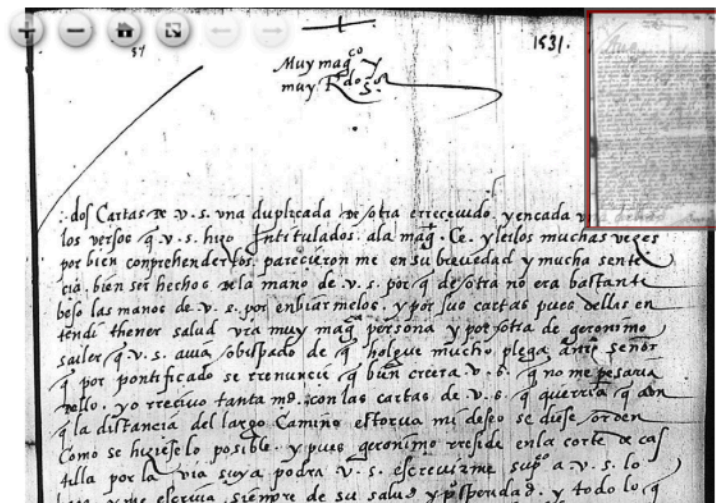 57
1531.
Muy mag^co y
muy R^do S^or
dos Cartas de v.s. una duplicada de otra e rrecevido. y en cada
los versos q̃ v.s. hizo Intitulados. a la mag̃. Ce. y leilos muchas vezes
por bien conprehenderlos. parecieron me en su brevedad y mucha sente
cia. bien ser hechos de la mano de .v.s. por q̃ de otra no era bastante
beso las manos de .v.s. por enbiarmelos. y por sus cartas pues dellas en
tendi thener salud vra muy mag^ca persona y por otra de geronimo
sailer q̃ v.s. avia obispado de q̃ holgue mucho plega a nr̃o señor
q̃ por pontificado se rrenuncie q̃ bien creera v.s. q̃ no me pesaria
dello. yo rrecivo tanta md. con las cartas de .v.s. q̃ querria q̃ aun
q̃ la distancia del largo Camino estorva mi deseo se diese orden
Como se hiziese lo posible. y pues geronimo rreside en la corte de cas
tilla por la via suya podra v.s. escrevirme sup^co a .v.s. lo
y me escriva siempre de su salud y p̃speridad. y todo lo q̃